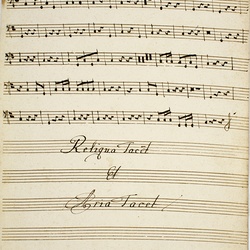 Reliqua Tacet
Et
Aria Tacet